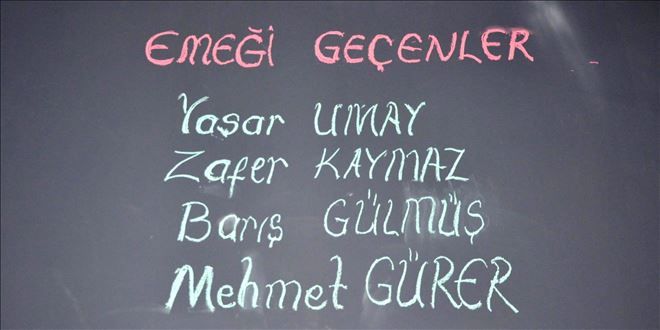 EMEĞİ GEÇENLER
Yaşar UMAY
Zafer KAYMAZ
Barış GÜLMÜŞ
Mehmet GÜRER